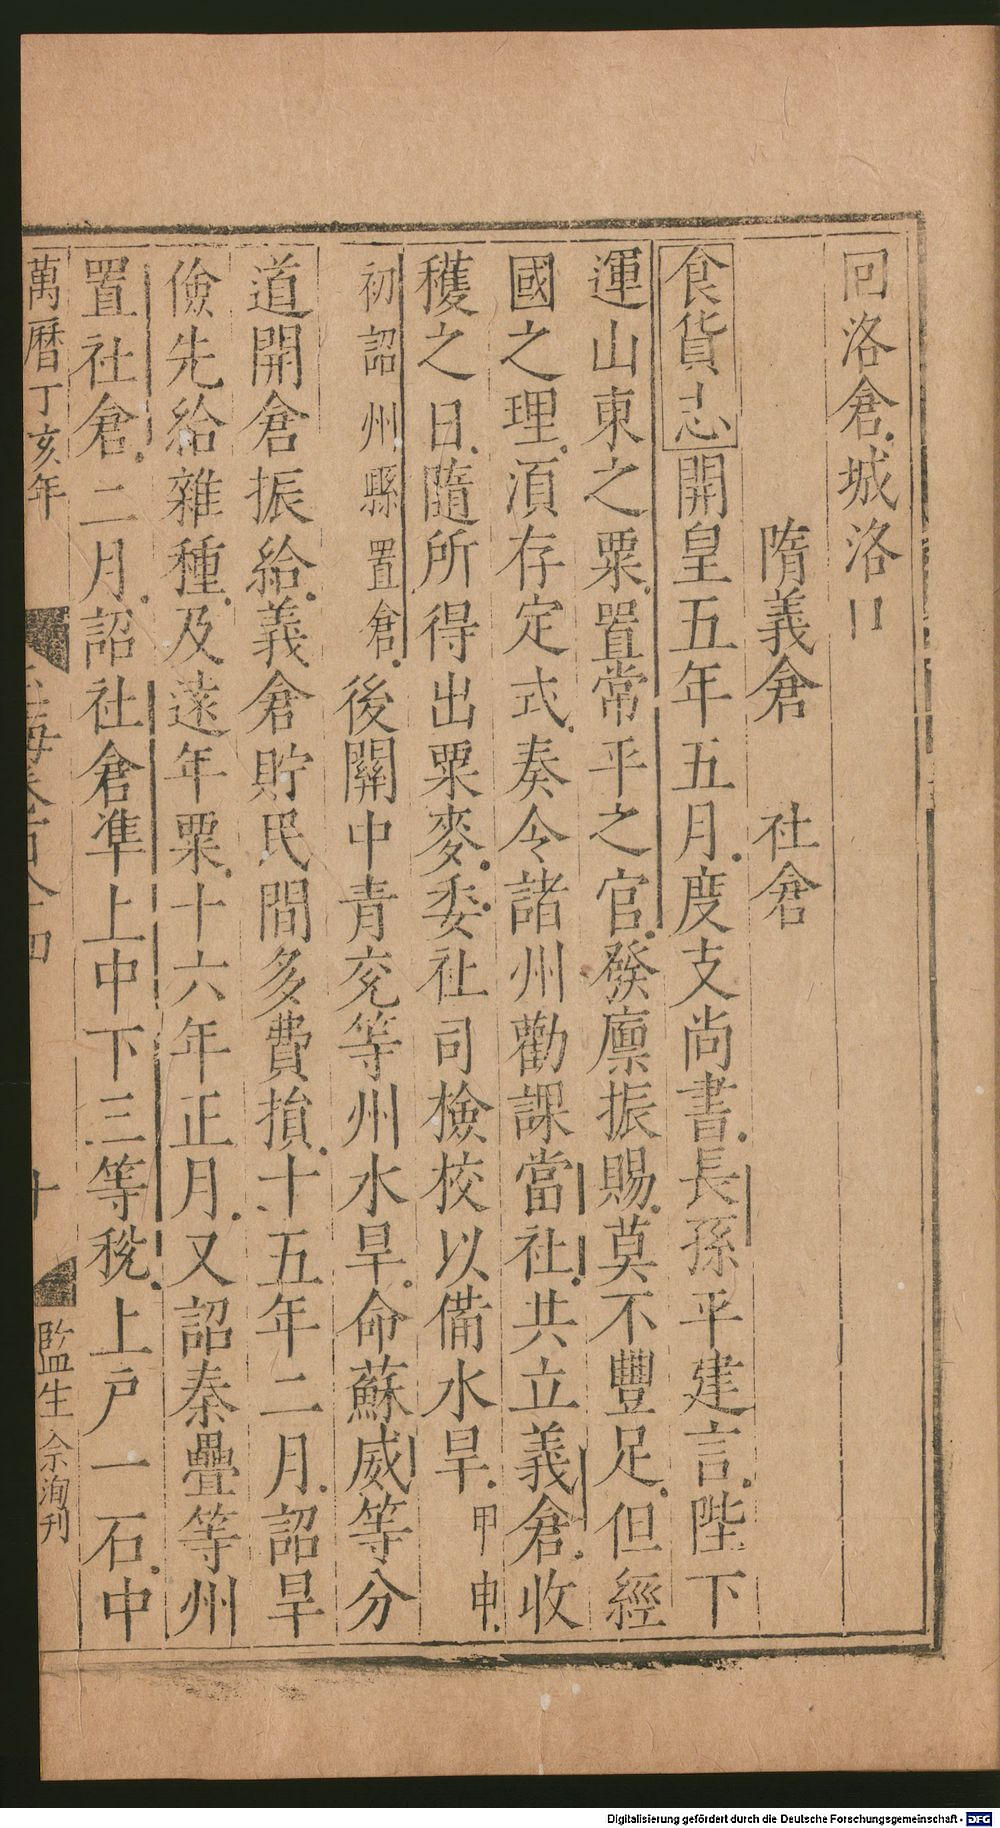 回洛倉城洛口
隋義倉 社倉
食貨志開皇五年五月度支尚書長孫平建言陛下
運山東之粟置常平之官發廪振賜莫不豐足但經
國之理湏存定式奏令諸州勸課當社共立義倉收
穫之日隨所得出粟麥委社司檢校以備水旱甲申
初詔州縣置倉後關中青兖等州水旱命蘇威等分
道開倉振給義倉貯民間多費損十五年二月詔旱
儉先給雜種及遠年粟十六年正月又詔秦疊等州
置社倉二月詔社倉準上中下三等税上戸一石中
萬曆丁亥年
十
監生佘洵刊
Digitalisierung gefördert durch die Deutsche Forschungsgemeinschaft - DFG